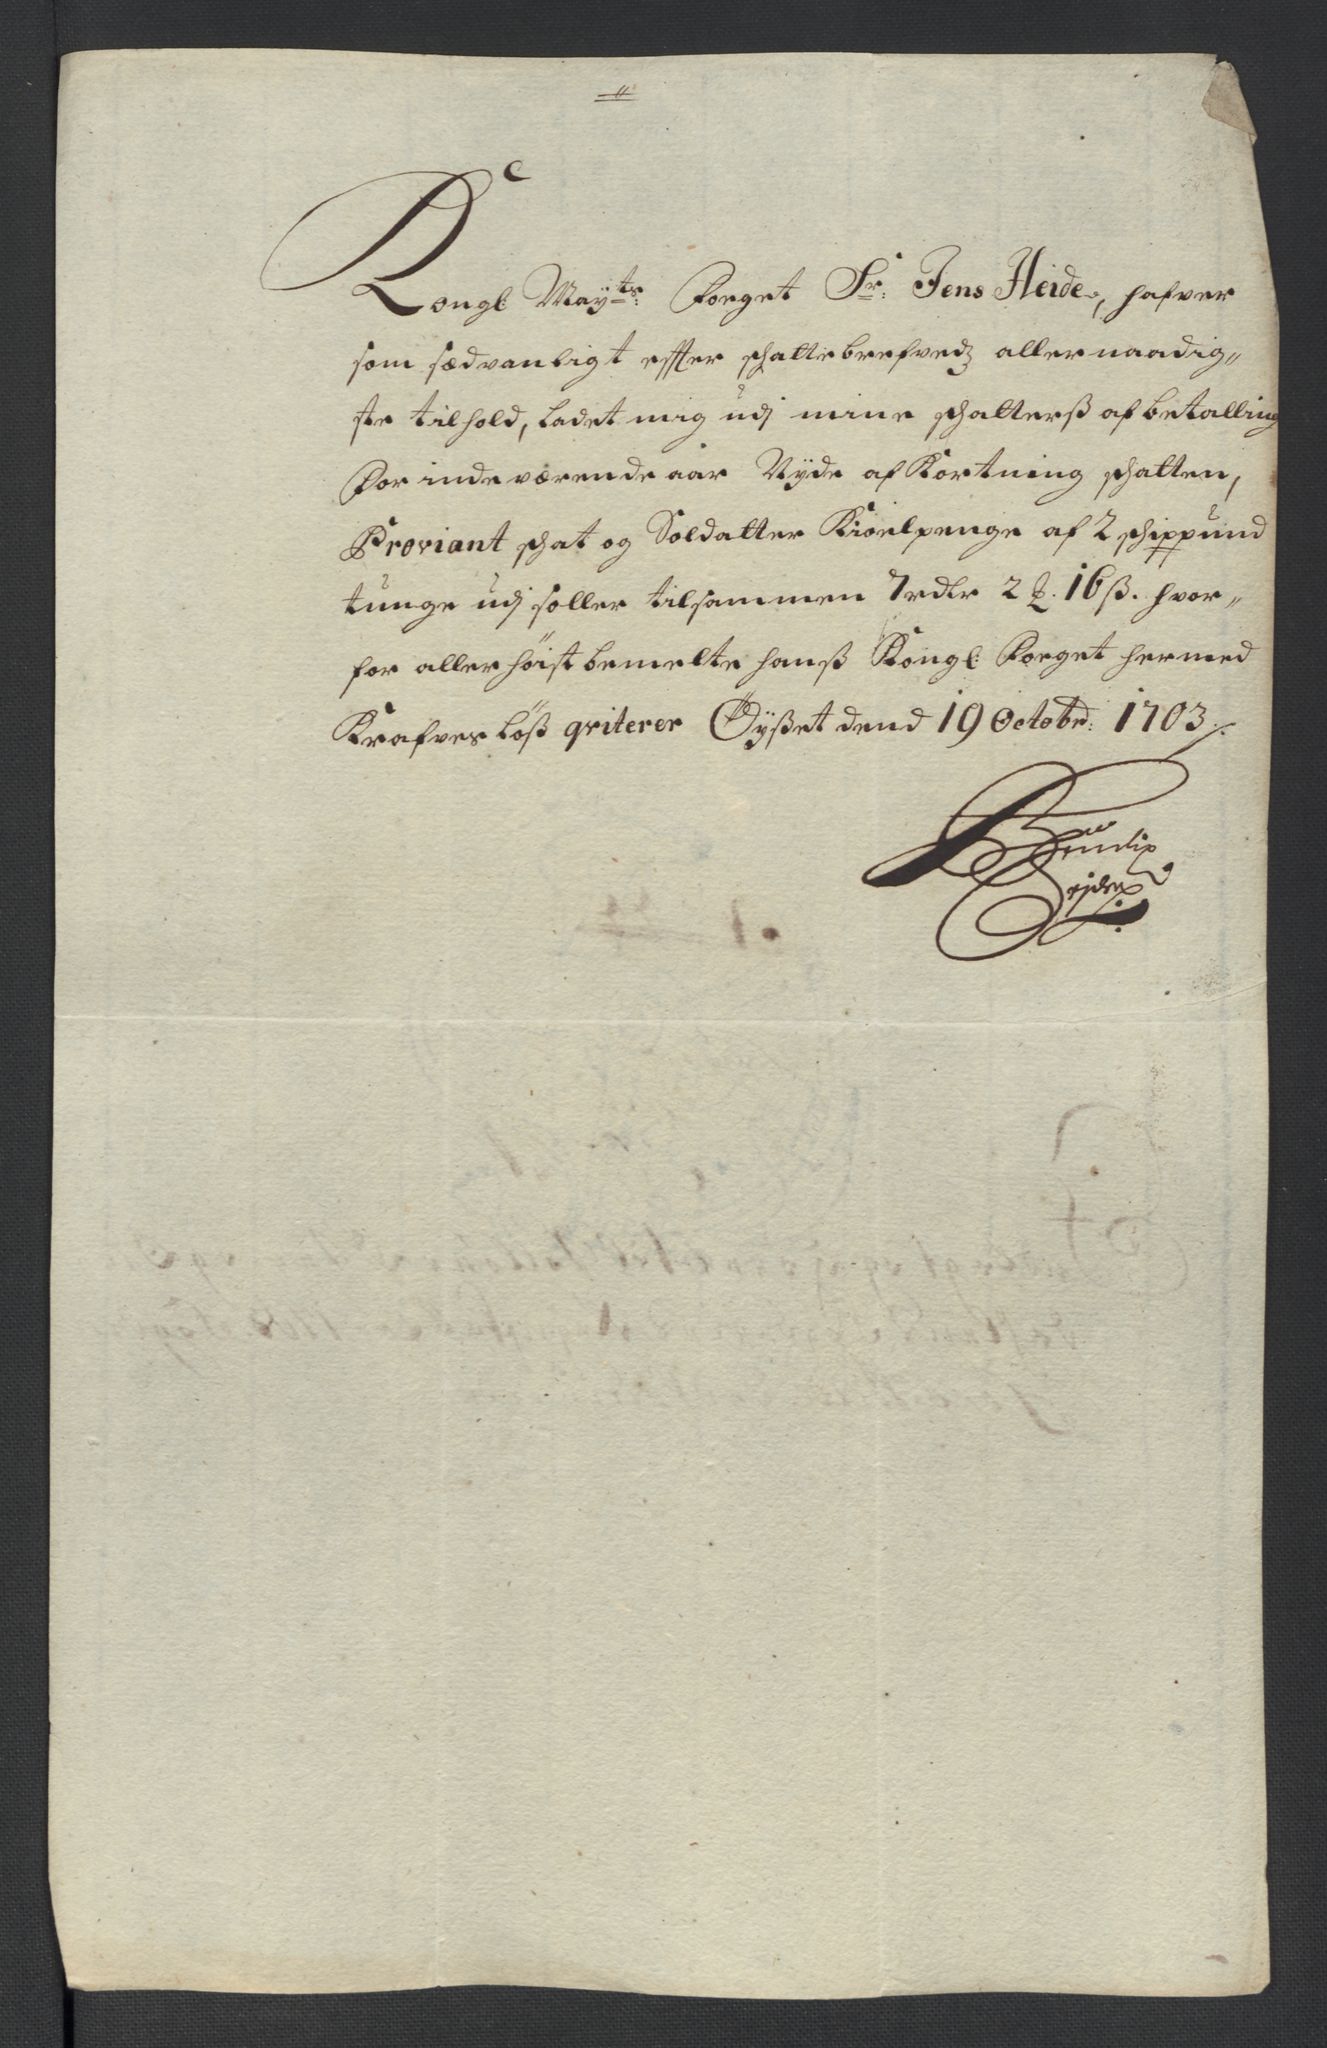 Kongl: May:ts Foeget Sr: Jens Heide, hafver
som sædvanligt effter schattebrefvedz allernaadig„
ste tilhold, ladet mig udj mine schatterß afbetalling
for indeværende aar Nyde afkortning schatten,
Proviant schat og Soldatter Kioelpenge af 2 schippund
tunge udj soller tilsammen 7 rdlr 2 ₰. 16 ß. hvor„
for allerhöist bemelte hanß Kongl: Foeget hermed
Krafvesløß qviterer Öyßet dend 19 Octobr: 1703 ./.
Bendix